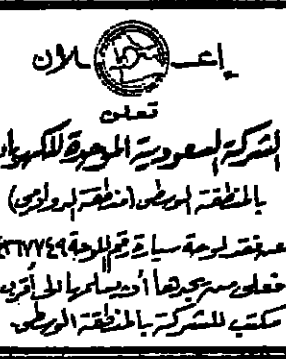 إعـــلان
تعلن
الشركة السعودية الموحدة للكهرباء
بالمنطقة الوسطى (منطقة الدوادمي)
عن فقد لوحة سيارة رقم اللوحة
فعلى من يجدها أن يسلمها إلى أقرب
مكتب للشركة بالمنطقة الوسطى